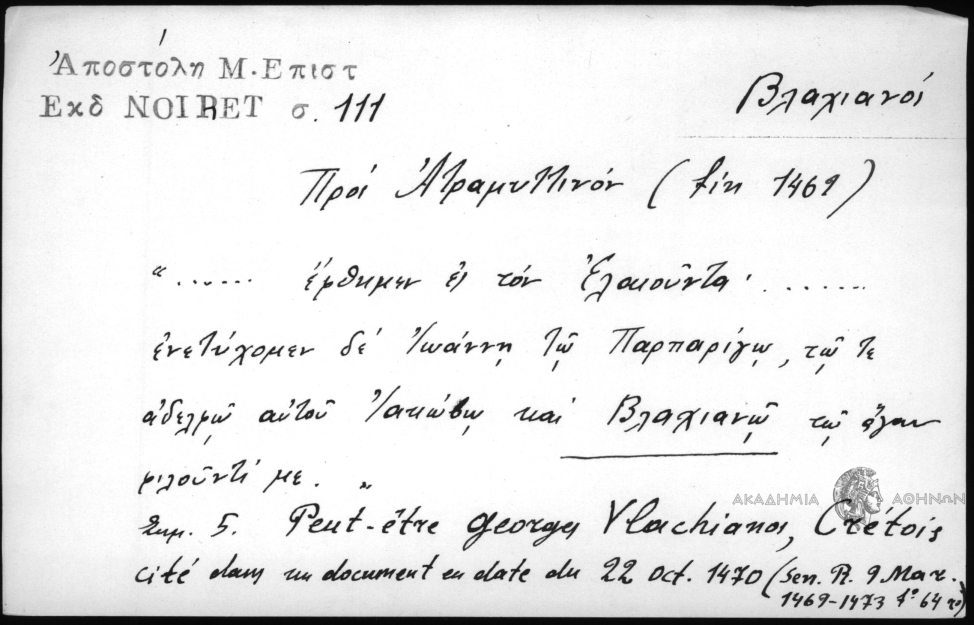 Ἀποστόλη Μ. Επιστ
Εκδ NOIRET σ. 111
Βλαχιανοί
Πρός Ἀτραμυττινόν (fin 1469)
"...... ἤρθημεν εἰς τόν Ἐλαιοῦντα· ......
ἐνετύχομεν δέ Ἰωάννῃ τῷ Παρπαρίγῳ, τῷ τε
ἀδελφῷ αὐτοῦ Ἰακώβῳ καί Βλαχιανῷ τῷ ἄγαν
φιλοῦντί με. "
ΑΚΑΔΗΜΙΑ ΑΘΗΝΩΝ
Σημ. 5. Peut-être Georges Vlachianos, Crétois
cité dans un document en date du 22 oct. 1470 (Sen. R. 9 Mar.
1469-1473 f° 64 r°)